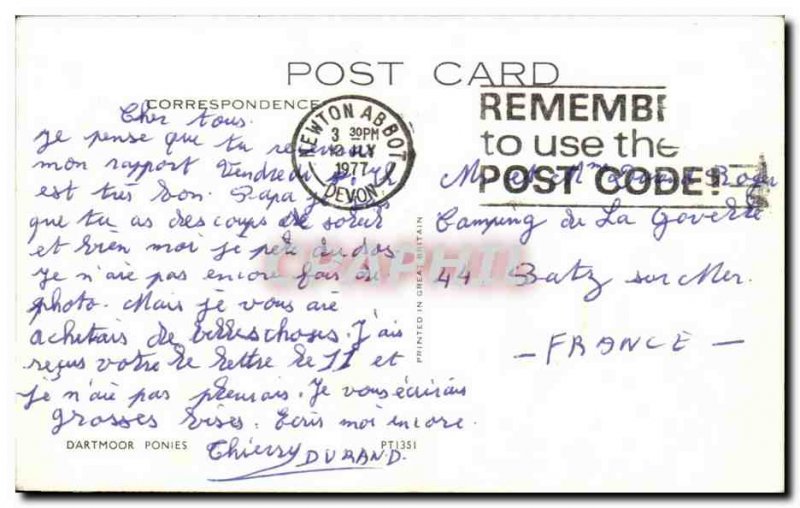 POST CARD
CORRESPONDENCE
NEWTON ABBOT
3 30PM
12 JLY
1977
DEVON
REMEMBE
to use the
POST CODE!
Cher tous.
je pense que tu
mon rapport Vendredi
est très bon. Papa je
que tu as des coups de soleil
et bien moi je pete du dos
Je n'aie pas encore fais de
photo. Mais je vous aie
achetais de belles choses. J'ais
reçus votre lettre le 11 et
je n'aie pas pleurais. Je vous écrirais
grosses bises. Ecris moi encore.
Thierry DURAND.
DARTMOOR PONIES
PT1351
PRINTED IN GREAT BRITAIN
Mr et Mme Durand Roger
Camping de La Govelle
44 Batz sur Mer.
- FRANCE -
CPAPHIL